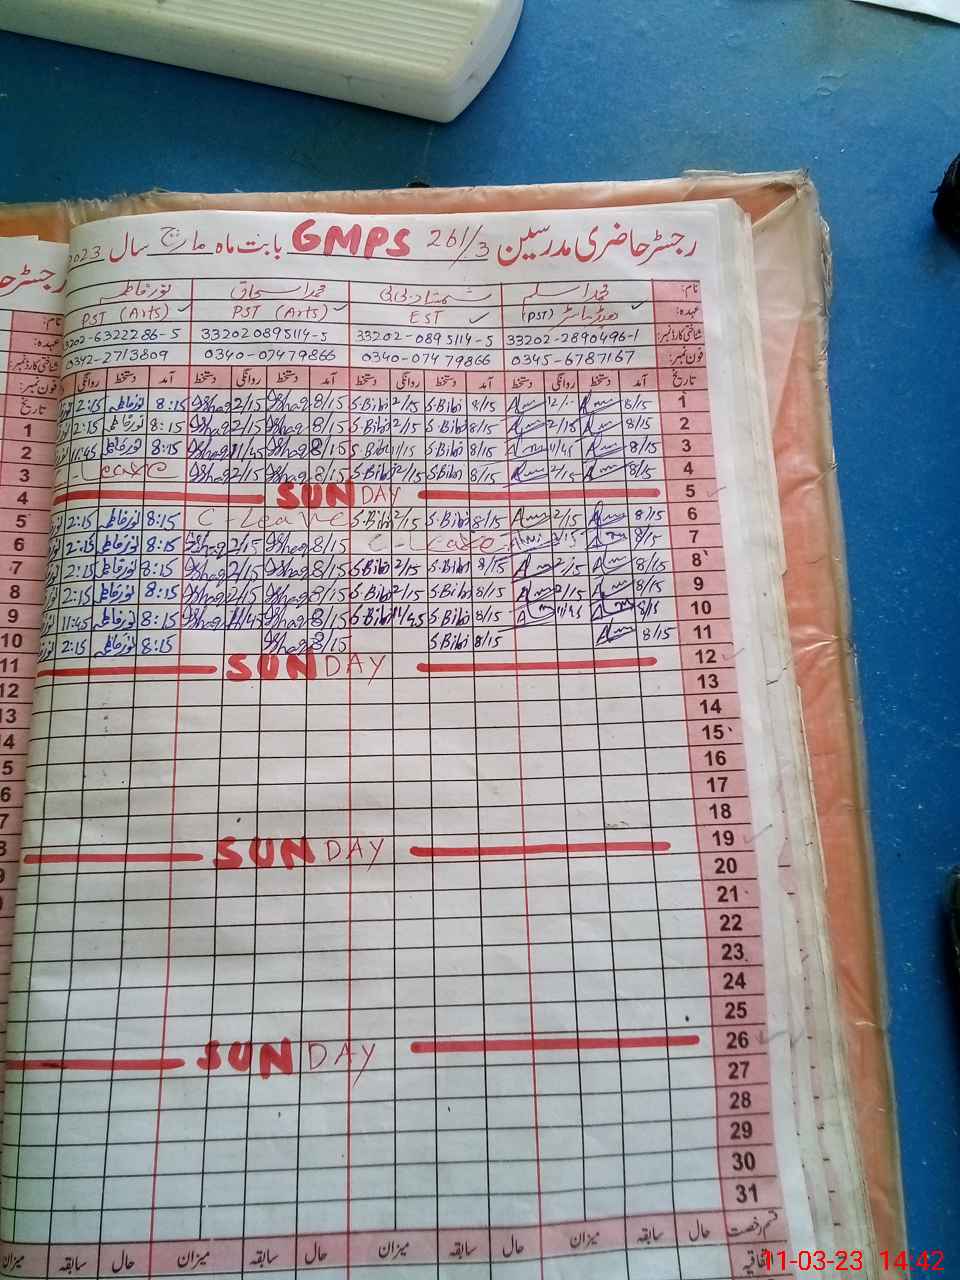 رجسٹر حاضری مدرسین 261/3 GMPS بابت ماہ مارچ سال 2023
نام: محمد اسلم شمشاد بی بی محمد اسحاق نور فاطمہ
عہدہ: ہیڈ ماسٹر (PST) EST PST (Arts) PST (Arts)
شناختی کارڈ نمبر: 33202-2890496-1 33202-0895114-5 332020895114-5 33202-6322286-5
فون نمبر: 0345-6787167 0340-07479866 0340-07479866 0342-2713809
تاریخ آمد دستخط روانگی دستخط آمد دستخط روانگی دستخط آمد دستخط روانگی دستخط آمد دستخط روانگی
1 8/15 S.Bibi 8/15 S.Bibi 2/15 8/15 Ishaq 2/15 Ishaq 8:15 نور فاطمہ 2:15
2 8/15 2/15 8/15 S.Bibi 2/15 S.Bibi 8/15 Ishaq 2/15 Ishaq 8:15 نور فاطمہ 2:15
3 8/15 11/45 8/15 S.Bibi 11/15 S.Bibi 8/15 Ishaq 11/45 Ishaq 8:15 نور فاطمہ 11:45
4 8/15 2/15 8/15 S.Bibi 2/15 S.Bibi 8/15 Ishaq 2/15 Ishaq Leave
5 SUNDAY
6 8/15 2/15 8/15 S.Bibi 2/15 S.Bibi C-Leave 8:15 نور فاطمہ 2:15
7 8/15 2/15 C-Leave 8/15 Ishaq 2/15 Ishaq 8:15 نور فاطمہ 2:15
8 8/15 2/15 8/15 S.Bibi 2/15 S.Bibi 8/15 Ishaq 2/15 Ishaq 8:15 نور فاطمہ 2:15
9 8/15 2/15 8/15 S.Bibi 2/15 S.Bibi 8/15 Ishaq 2/15 Ishaq 8:15 نور فاطمہ 2:15
10 8/15 11/45 8/15 S.Bibi 11/45 S.Bibi 8/15 Ishaq 11/45 Ishaq 8:15 نور فاطمہ 11:45
11 8/15 8/15 S.Bibi 8/15 Ishaq 8:15 نور فاطمہ 2:15
12 SUNDAY
13
14
15
16
17
18
19 SUNDAY
20
21
22
23
24
25
26 SUNDAY
27
28
29
30
31
قسم رخصت حال سابقہ میزان حال سابقہ میزان حال سابقہ میزان حال سابقہ میزان
11-03-23 14:42